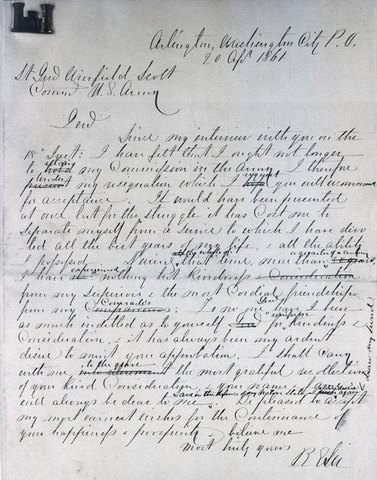 Arlington, Washington City P.O.
20 Apl 1861
Lt Genl Winfield Scott
Commd U.S. Army
Genl
Since my interview with you on the
18th Inst: I have felt that I ought not longer
to retain my Commission in the Army. I therefore
tender my resignation which I request you will recommend
for acceptance. It would have been presented
at once but for the struggle it has Cost me to
separate myself from a service to which I have devo
ted all the best years of my life, & all the ability
I possessed. During the whole of that time, more than a quarter of a century
I have experienced nothing but Kindness & Consideration
from my Superiors & the most Cordial friendship
from my Comrades To no one Genl have I been
as much indebted as to yourself for Kindness &
Consideration, & it has always been my ardent
desire to merit your approbation. I shall carry
with me to the grave the most grateful recollections
of your Kind Consideration, & your name & fame
will always be dear to me
Save in the defence of my native State
again draw my sword
Be pleased to accept
my most earnest wishes for the Continuance of
your happiness & prosperity & believe me
most truly yours
R E Lee